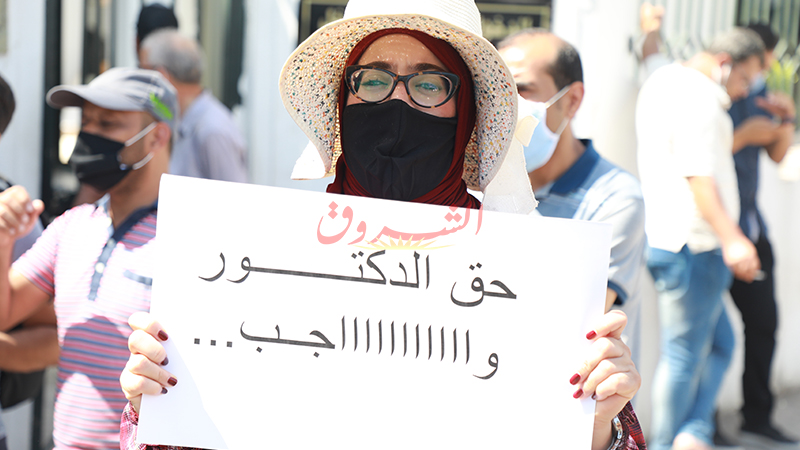 الشروق
حق الدكتـــــــور
واااااااااااجـب...